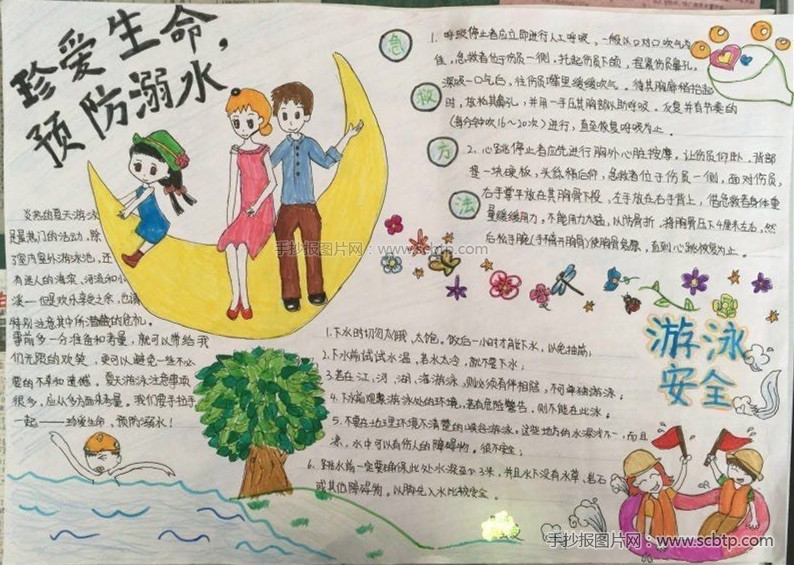 珍爱生命，
预防溺水
炎热的夏天游泳
是最热门的活动，除
了室内室外游泳池，还
有迷人的海滨、河流和小
溪—但是欢乐享受之余，也请
特别注意其中所潜藏的危机。
事前多一分准备和考量，就可以带给我
们无限的欢笑，更可以避免一些不必
要的不幸和遗憾。夏天游泳注意事项
很多，应从多方面来考量。我们要手拉手
一起——珍爱生命，预防溺水！
急
救
方
法
1. 呼吸停止者应立即进行人工呼吸，一般以口对口吹气为
佳，急救者位于伤员一侧，托起伤员下颌，捏紧伤员鼻孔，
深吸一口气后，往伤员嘴里缓缓吹气，待其胸廓稍抬起
时，放松其鼻孔，并用一手压其胸部以助呼气。反复并有节奏的
（每分钟吹16～20次）进行，直至恢复呼吸为止。
2. 心跳停止者应先进行胸外心脏按摩，让伤员仰卧，背部
垫一块硬板，头低稍后仰，急救者位于伤员一侧，面对伤员，
右手掌平放在其胸骨下段，左手放在右手背上，借急救者身体重
量缓缓用力，不能用力太猛，以防骨折，将胸骨压下4厘米左右，然
后松手腕（手不离开胸骨）使胸骨复原，直到心跳恢复为止。
手抄报图片网：www.scbtp.com
游泳
安全
1.下水时切勿太饿、太饱。饭后一小时才能下水，以免抽筋；
2.下水前试试水温，若水太冷，就不要下水；
3.若在江、河、湖、海游泳，则必须有伴相陪，不可单独游泳；
4.下水前观察游泳处的环境，若有危险警告，则不能在此游；
5.不要在地理环境不清楚的峡谷游泳。这些地方的水深浅不一，而且
凉，水中可以有伤人的障碍物，很不安全；
6.跳水前一定要确保此处水深至少3米，并且水下没有水草、岩石
或其他障碍物。以脚先入水比较安全。
手抄报图片网：www.scbtp.com